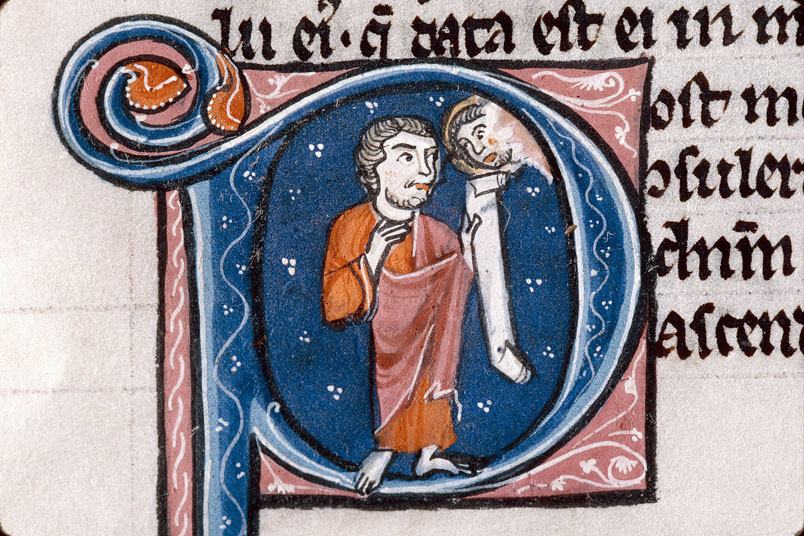 lii eiꝰ· q̄ data est ei in m
Post m
ꝯsuler
dn̄m
ascend